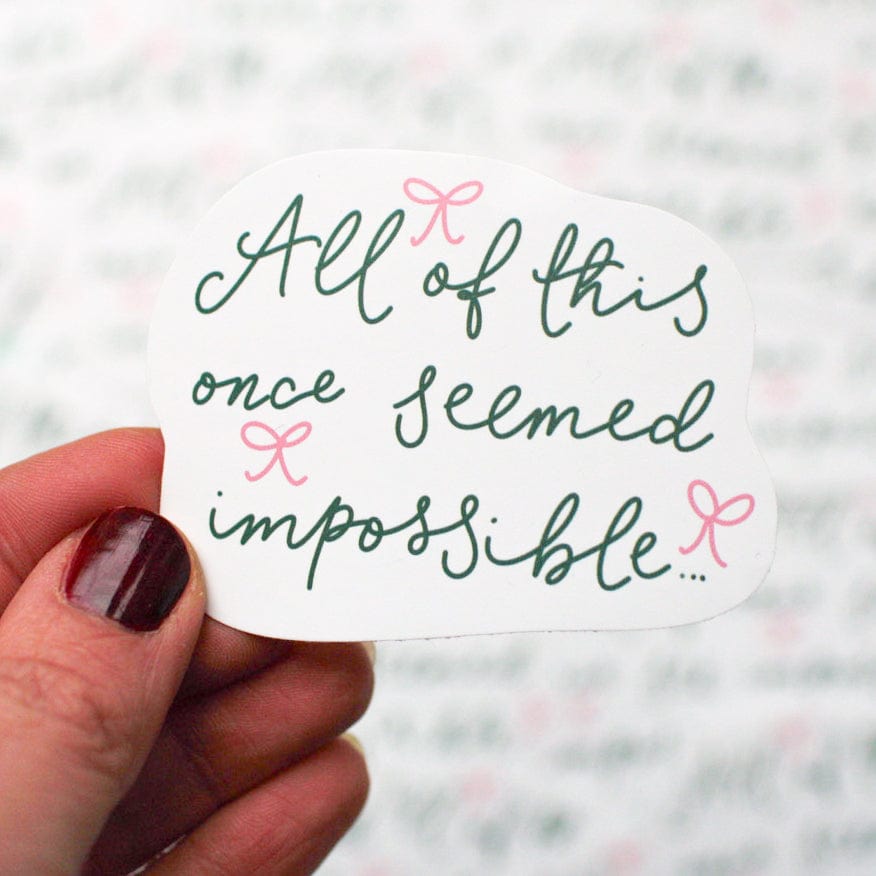 All of this
once seemed
impossible...